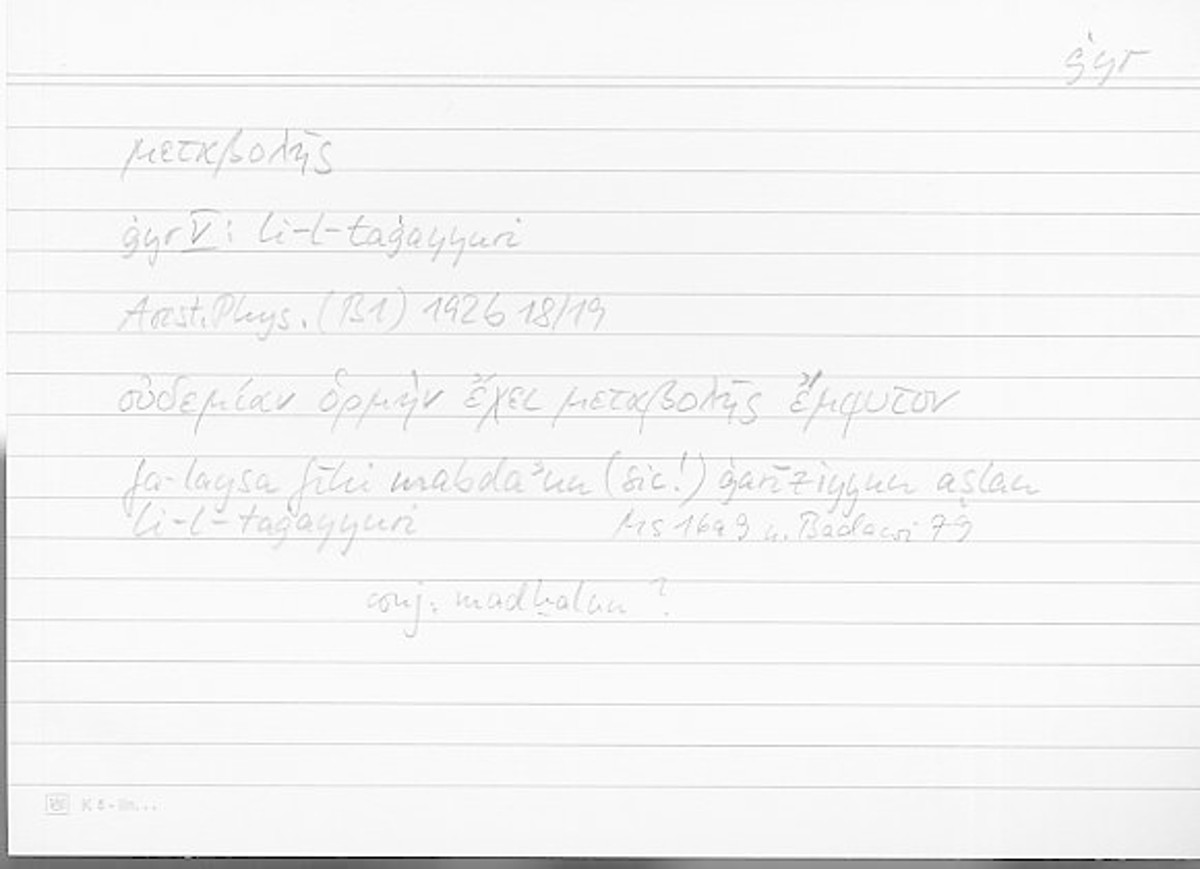 ġyr
μεταβολῆς
ġyr V: li-l-taġayyuri
Arist. Phys. (B1) 192b 18/19
οὐδεμίαν ὁρμὴν ἔχει μεταβολῆς ἔμφυτον
fa-laysa fīhi mabdaʾun (sic!) ġarīziyyun aṣlan
li-l-taġayyuri Ms 16a9 u. Badawi 79
conj. madḫalun ?